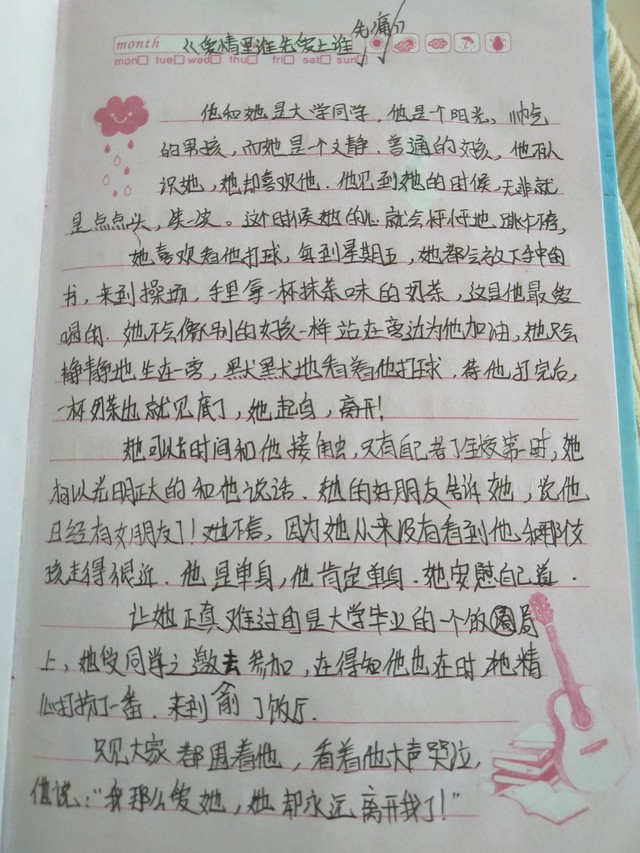 先痛
month 《爱情里谁先爱上谁
mon tue wed thu fri sat sun
他和她是大学同学，他是个阳光、帅气
的男孩，而她是个文静、普通的女孩，他不认
识她，她却喜欢他．他见到她的时候，无非就
是点点头，笑一次。这个时候她的心就会怦怦地跳个不停，
她喜欢看他打球，每到星期五，她都会放下手中的
书，来到操场，手里拿一杯抹茶味的奶茶，这是他最爱
喝的．她不会像别的女孩一样站在旁边为他加油，她只会
静静地坐在一旁，默默地看着他打球，待他打完后，
一杯奶茶也就见底了，她起身，离开！
她可以去时间和他接触，只有自己考了全校第一时，她
可以光明正大的和他说话．她的好朋友告诉她，说他
已经有女朋友了！她不信，因为她从来没有看到他和那位女
孩走得很近．他是单身，他肯定单身．她安慰自己道．
让她正真难过的是大学毕业的一个饭圈局
上，她受同学之邀去参加，在得知他也在时她精
心打扮了一番．来到俞了饭厅．
只见大家都围着他，看着他大声哭泣，
他说："我那么爱她，她却永远离开我了！"